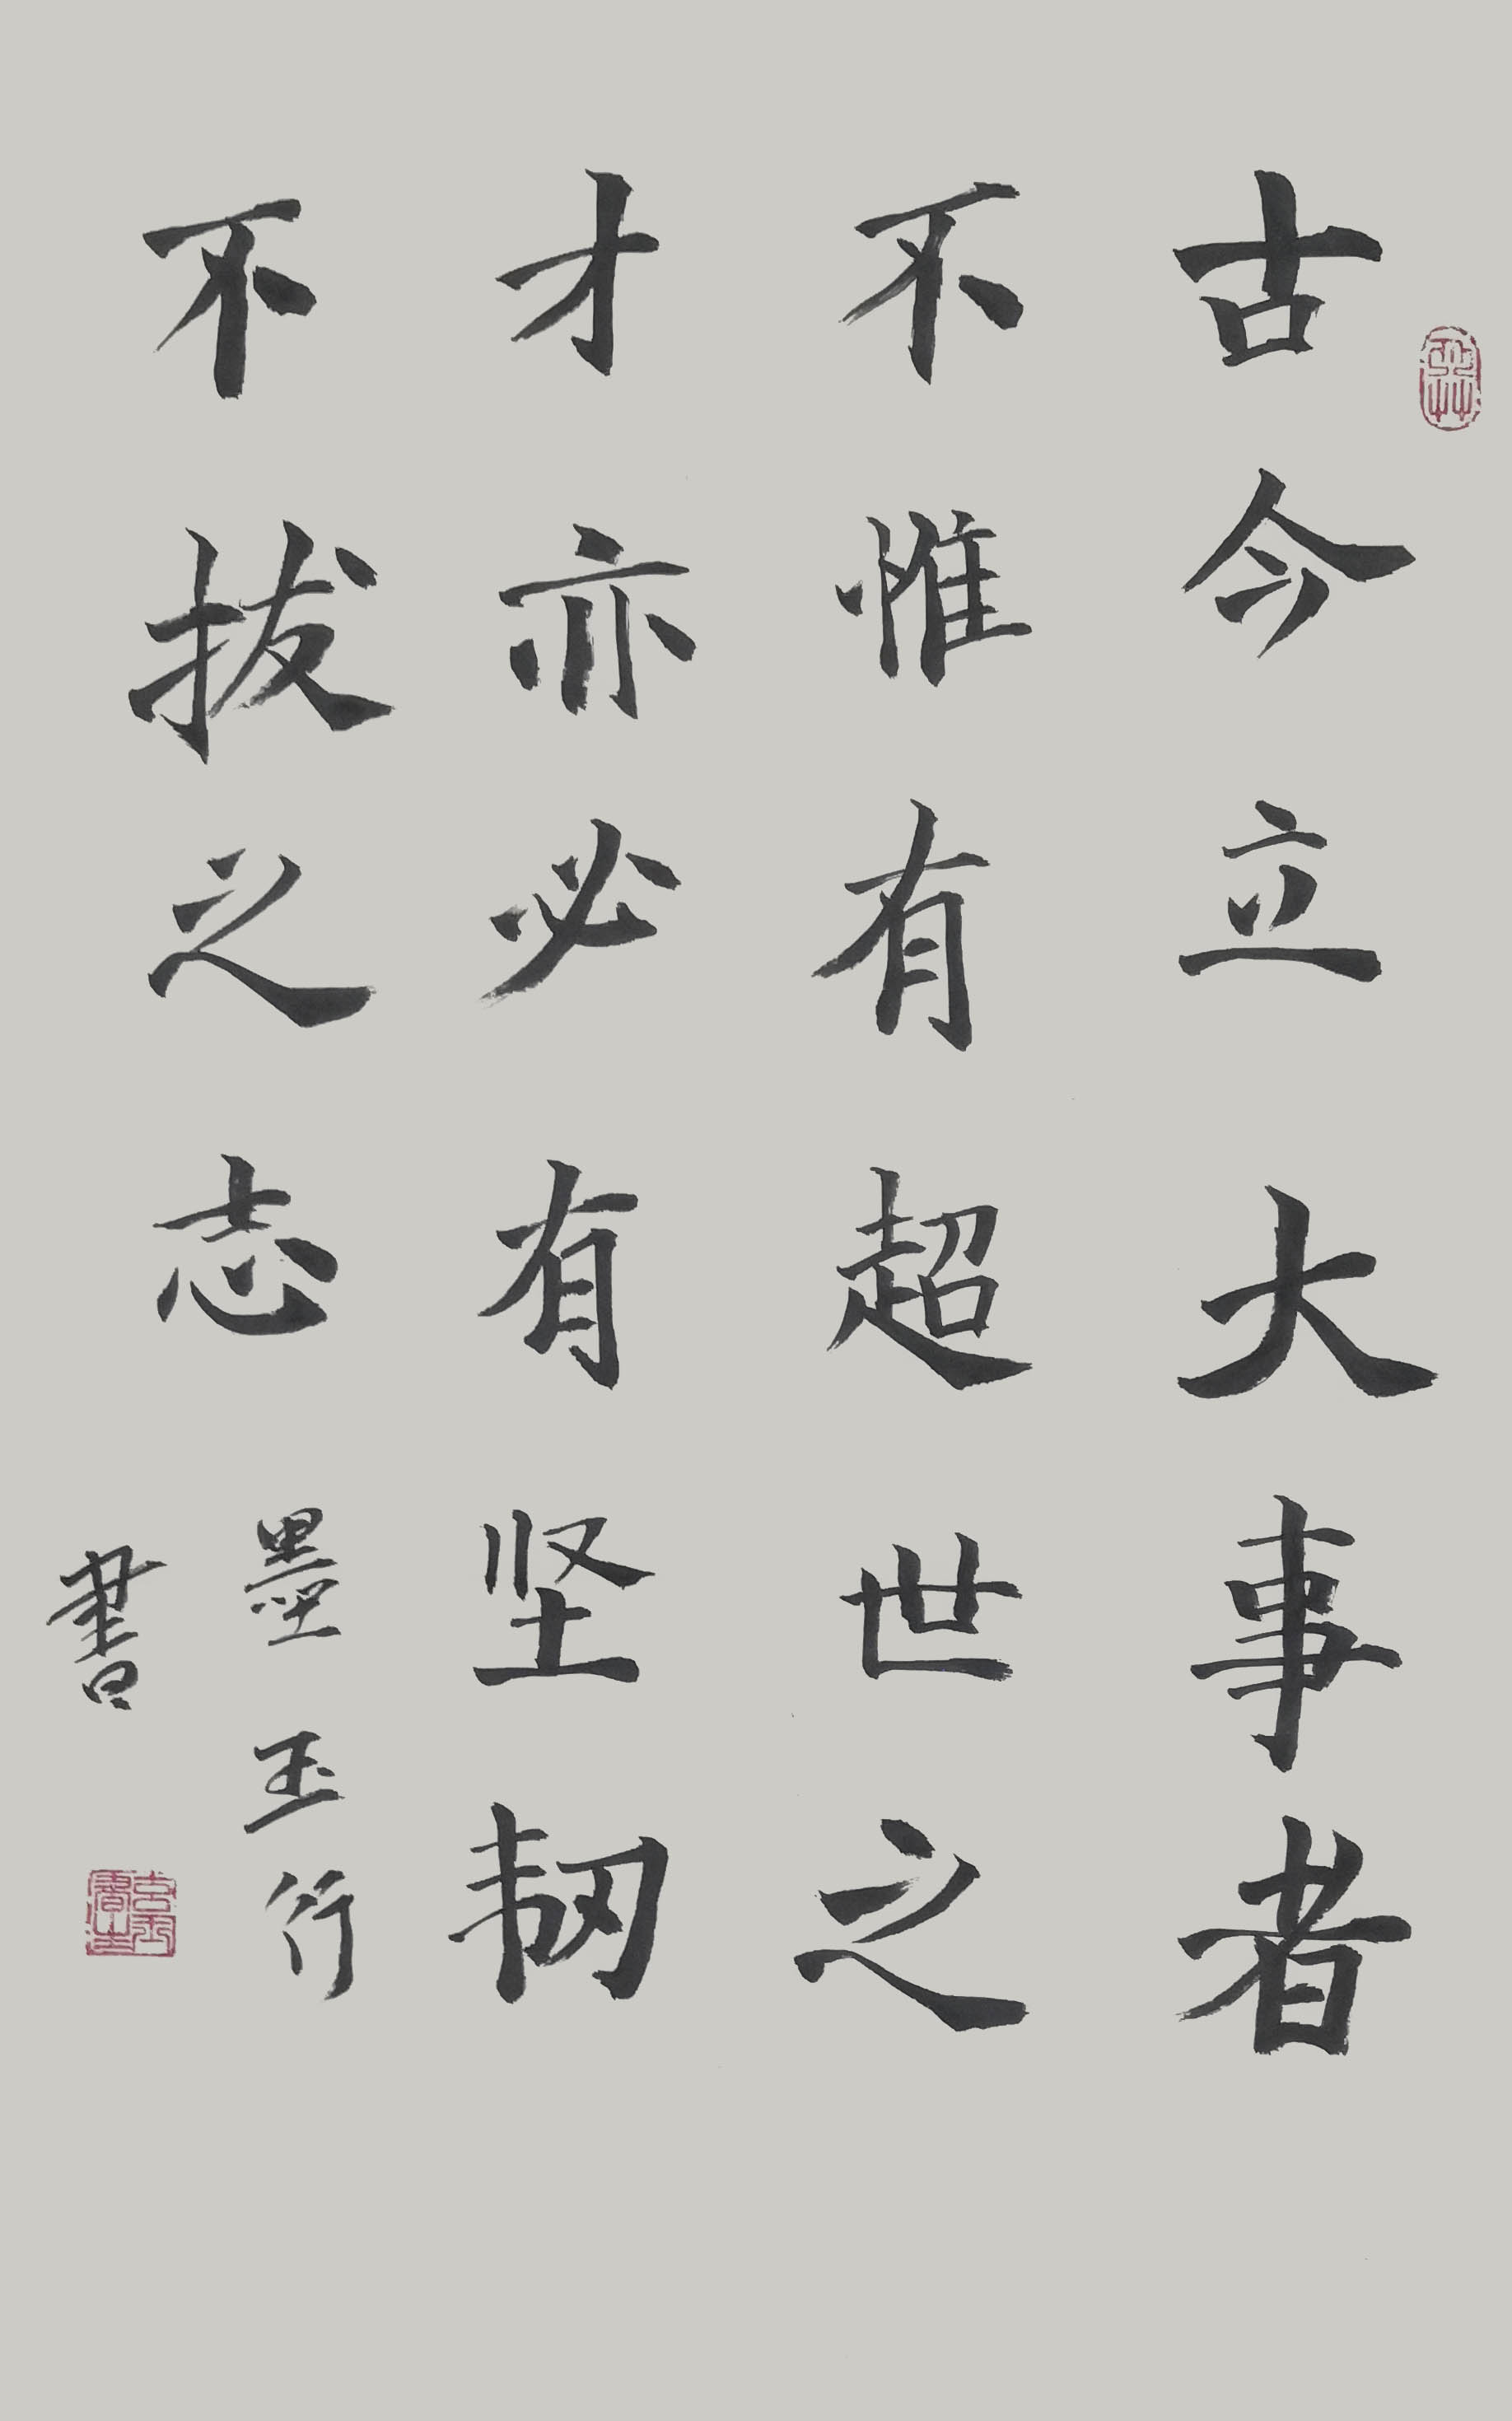 古今立大事者
不惟有超世之
才亦必有坚韧
不拔之志
墨玉行
書